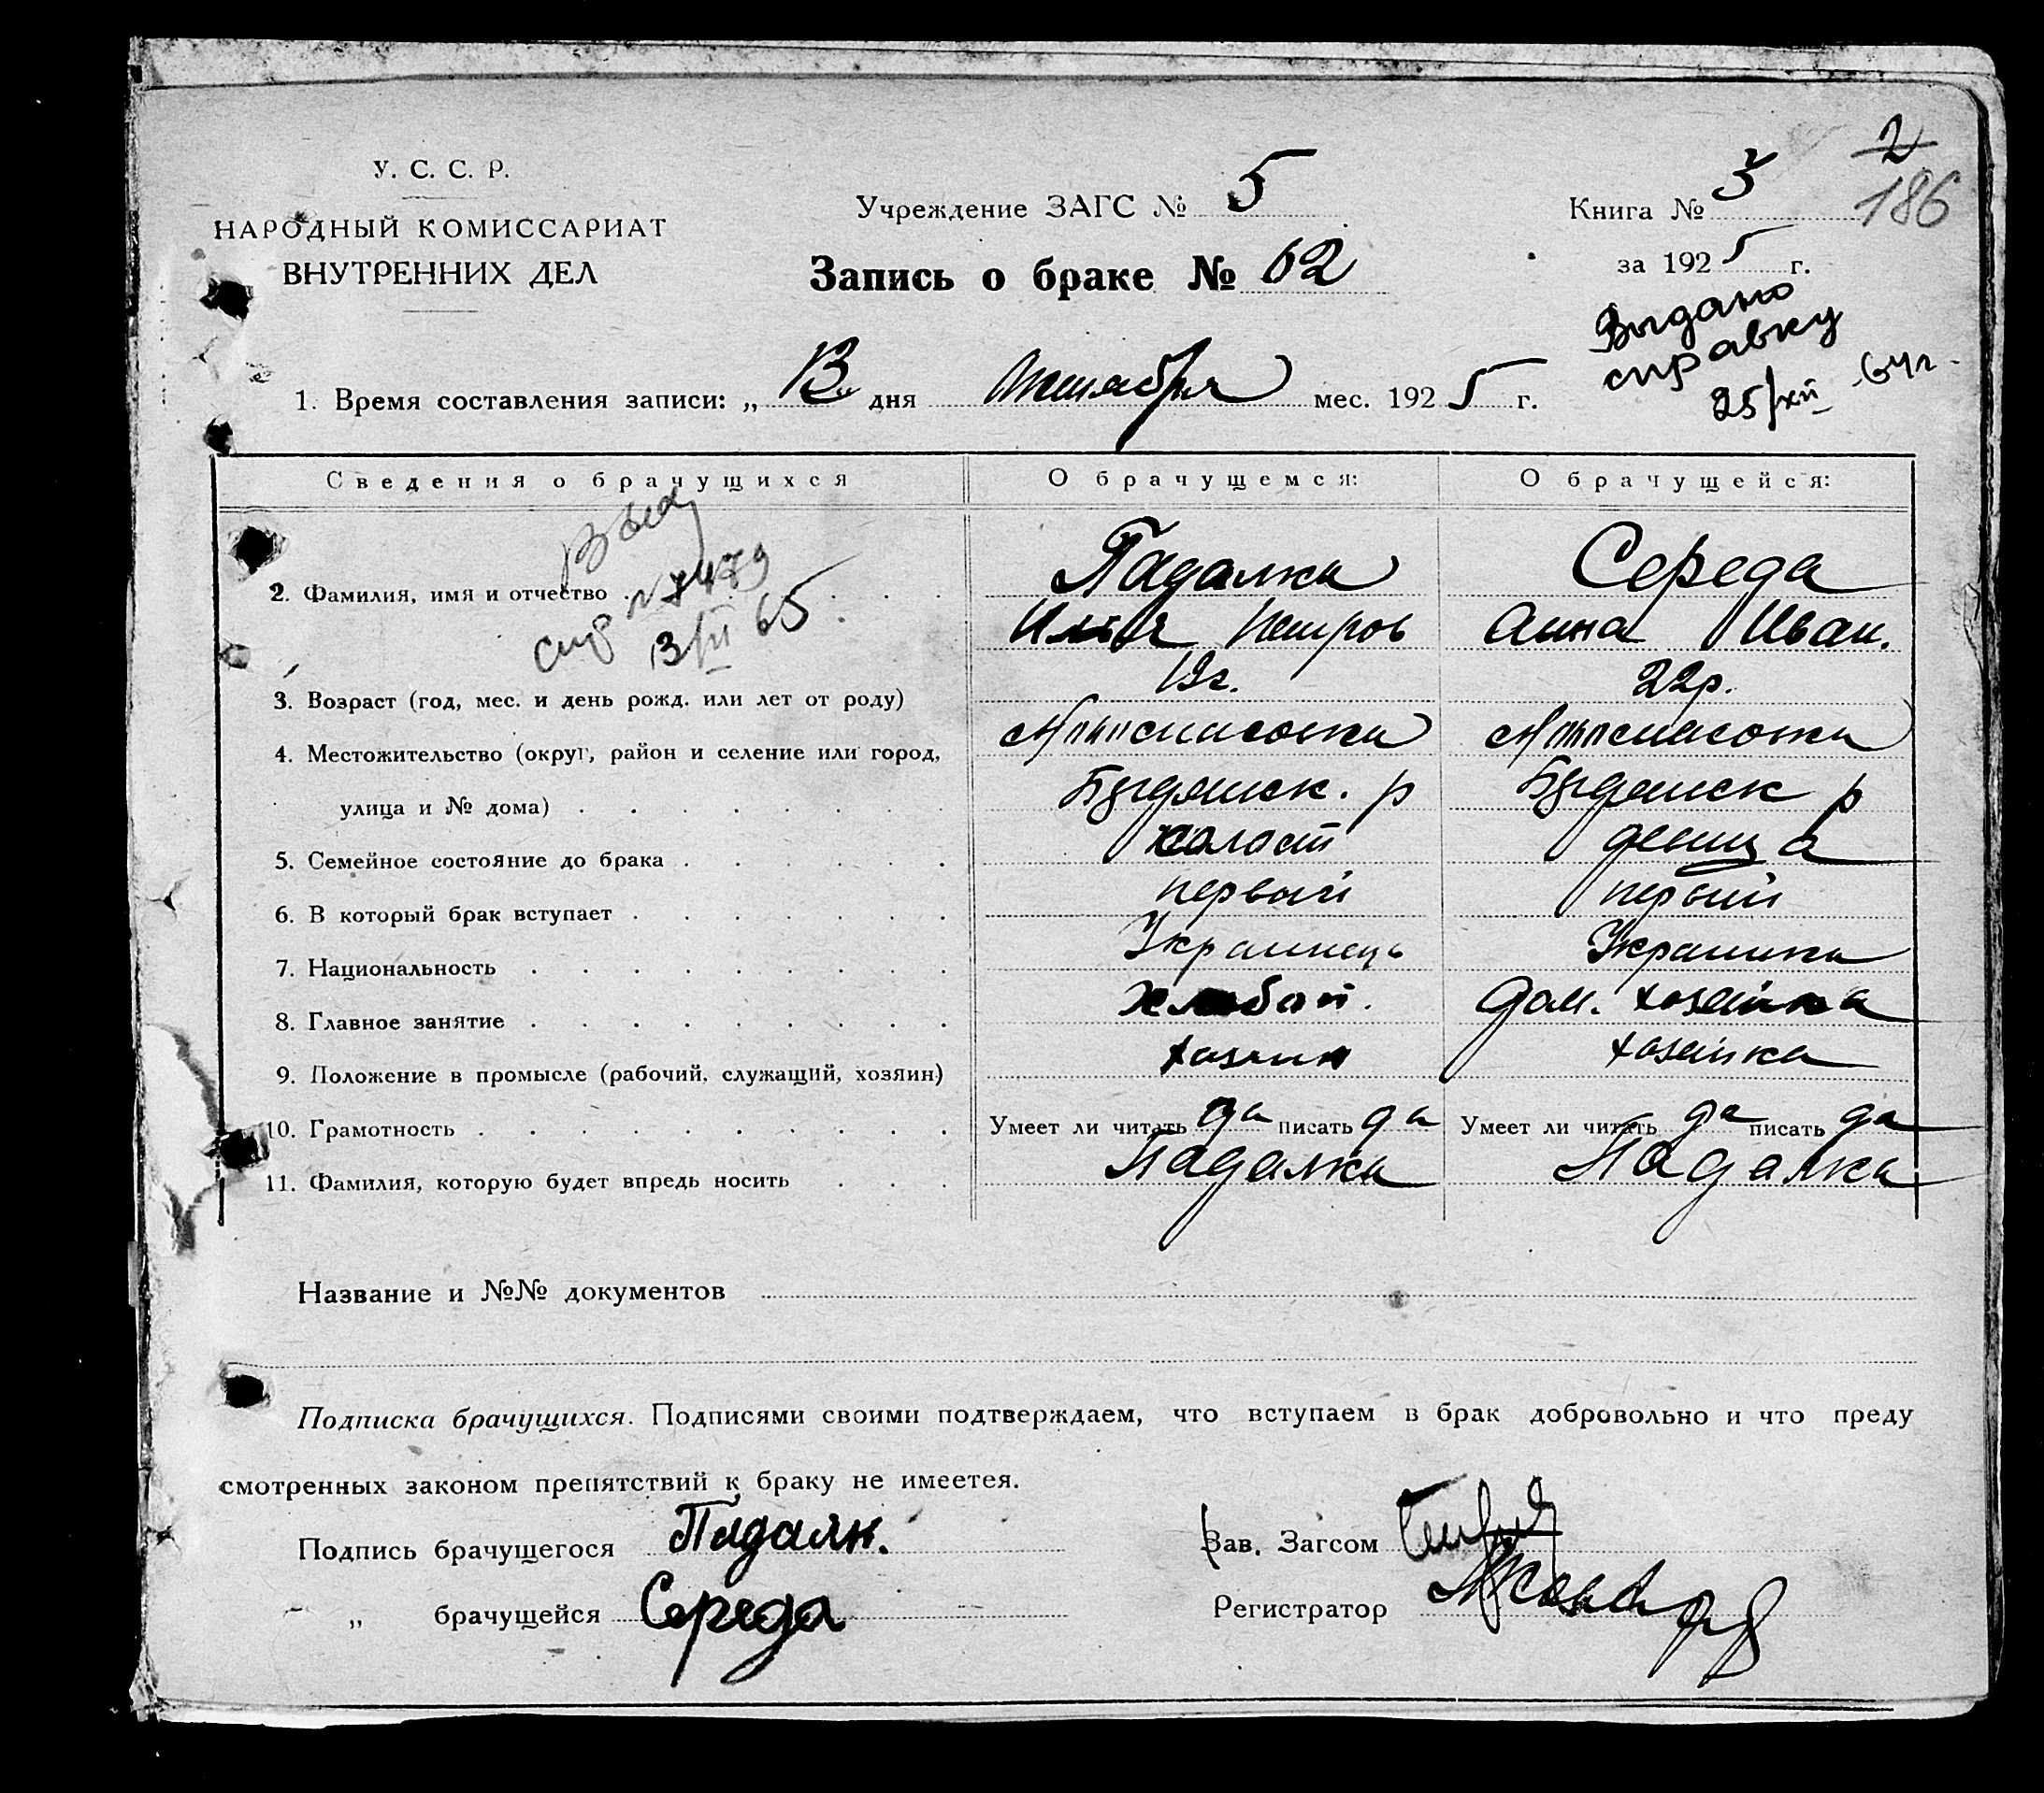 2
186
У. С. С. Р.
НАРОДНЫЙ КОМИССАРИАТ
ВНУТРЕННИХ ДЕЛ
Учреждение ЗАГС № 5
Книга № 3
за 1925 г.
Запись о браке № 62
Выдано
справку
25/XII 64 г.
1. Время составления записи: „ 13 " дня Октября мес. 1925 г.
Сведения о брачущихся О брачущемся: О брачущейся:
№ 7479
3/III 65
2. Фамилия, имя и отчество Падалка Середа
Илья Петров Анна Иван.
3. Возраст (год, мес. и день рожд. или лет от роду) 19г. 22р.
4. Местожительство (округ, район и селение или город,
улица и № дома) Будянск. р Будянск р
5. Семейное состояние до брака холост девица
6. В который брак вступает первый первый
7. Национальность Украинець Украинка
8. Главное занятие Дом. хозяйка
9. Положение в промысле (рабочий, служащий, хозяин) хозяин хозяйка
10. Грамотность Умеет ли читать да писать да Умеет ли читать да писать да
11. Фамилия, которую будет впредь носить Падалка Падалка
Название и №№ документов
Подписка брачущихся. Подписями своими подтверждаем, что вступаем в брак добровольно и что преду
смотренных законом препятствий к браку не имеетея.
Подпись брачущегося Падалк.
Зав. Загсом
„ брачущейся Середа
Регистратор